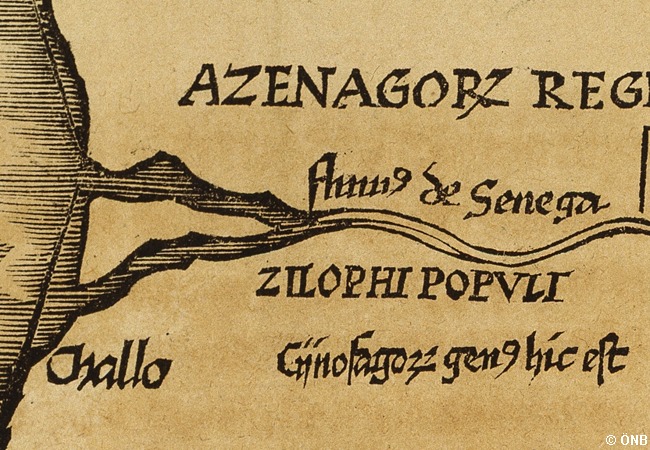 AZENAGORꝜ REGI
fluuiꝰ de Senega
ZILOPHI POPVLI
Challo
Cijnofagorꝝ genꝰ hic est
© ÖNB